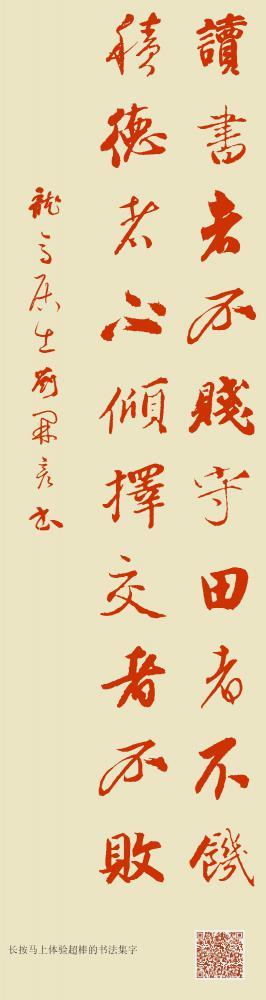 讀書者不賤守田者不饑
積德者心傾擇交者不敗
龍居士劉彦书
长按马上体验超棒的书法集字